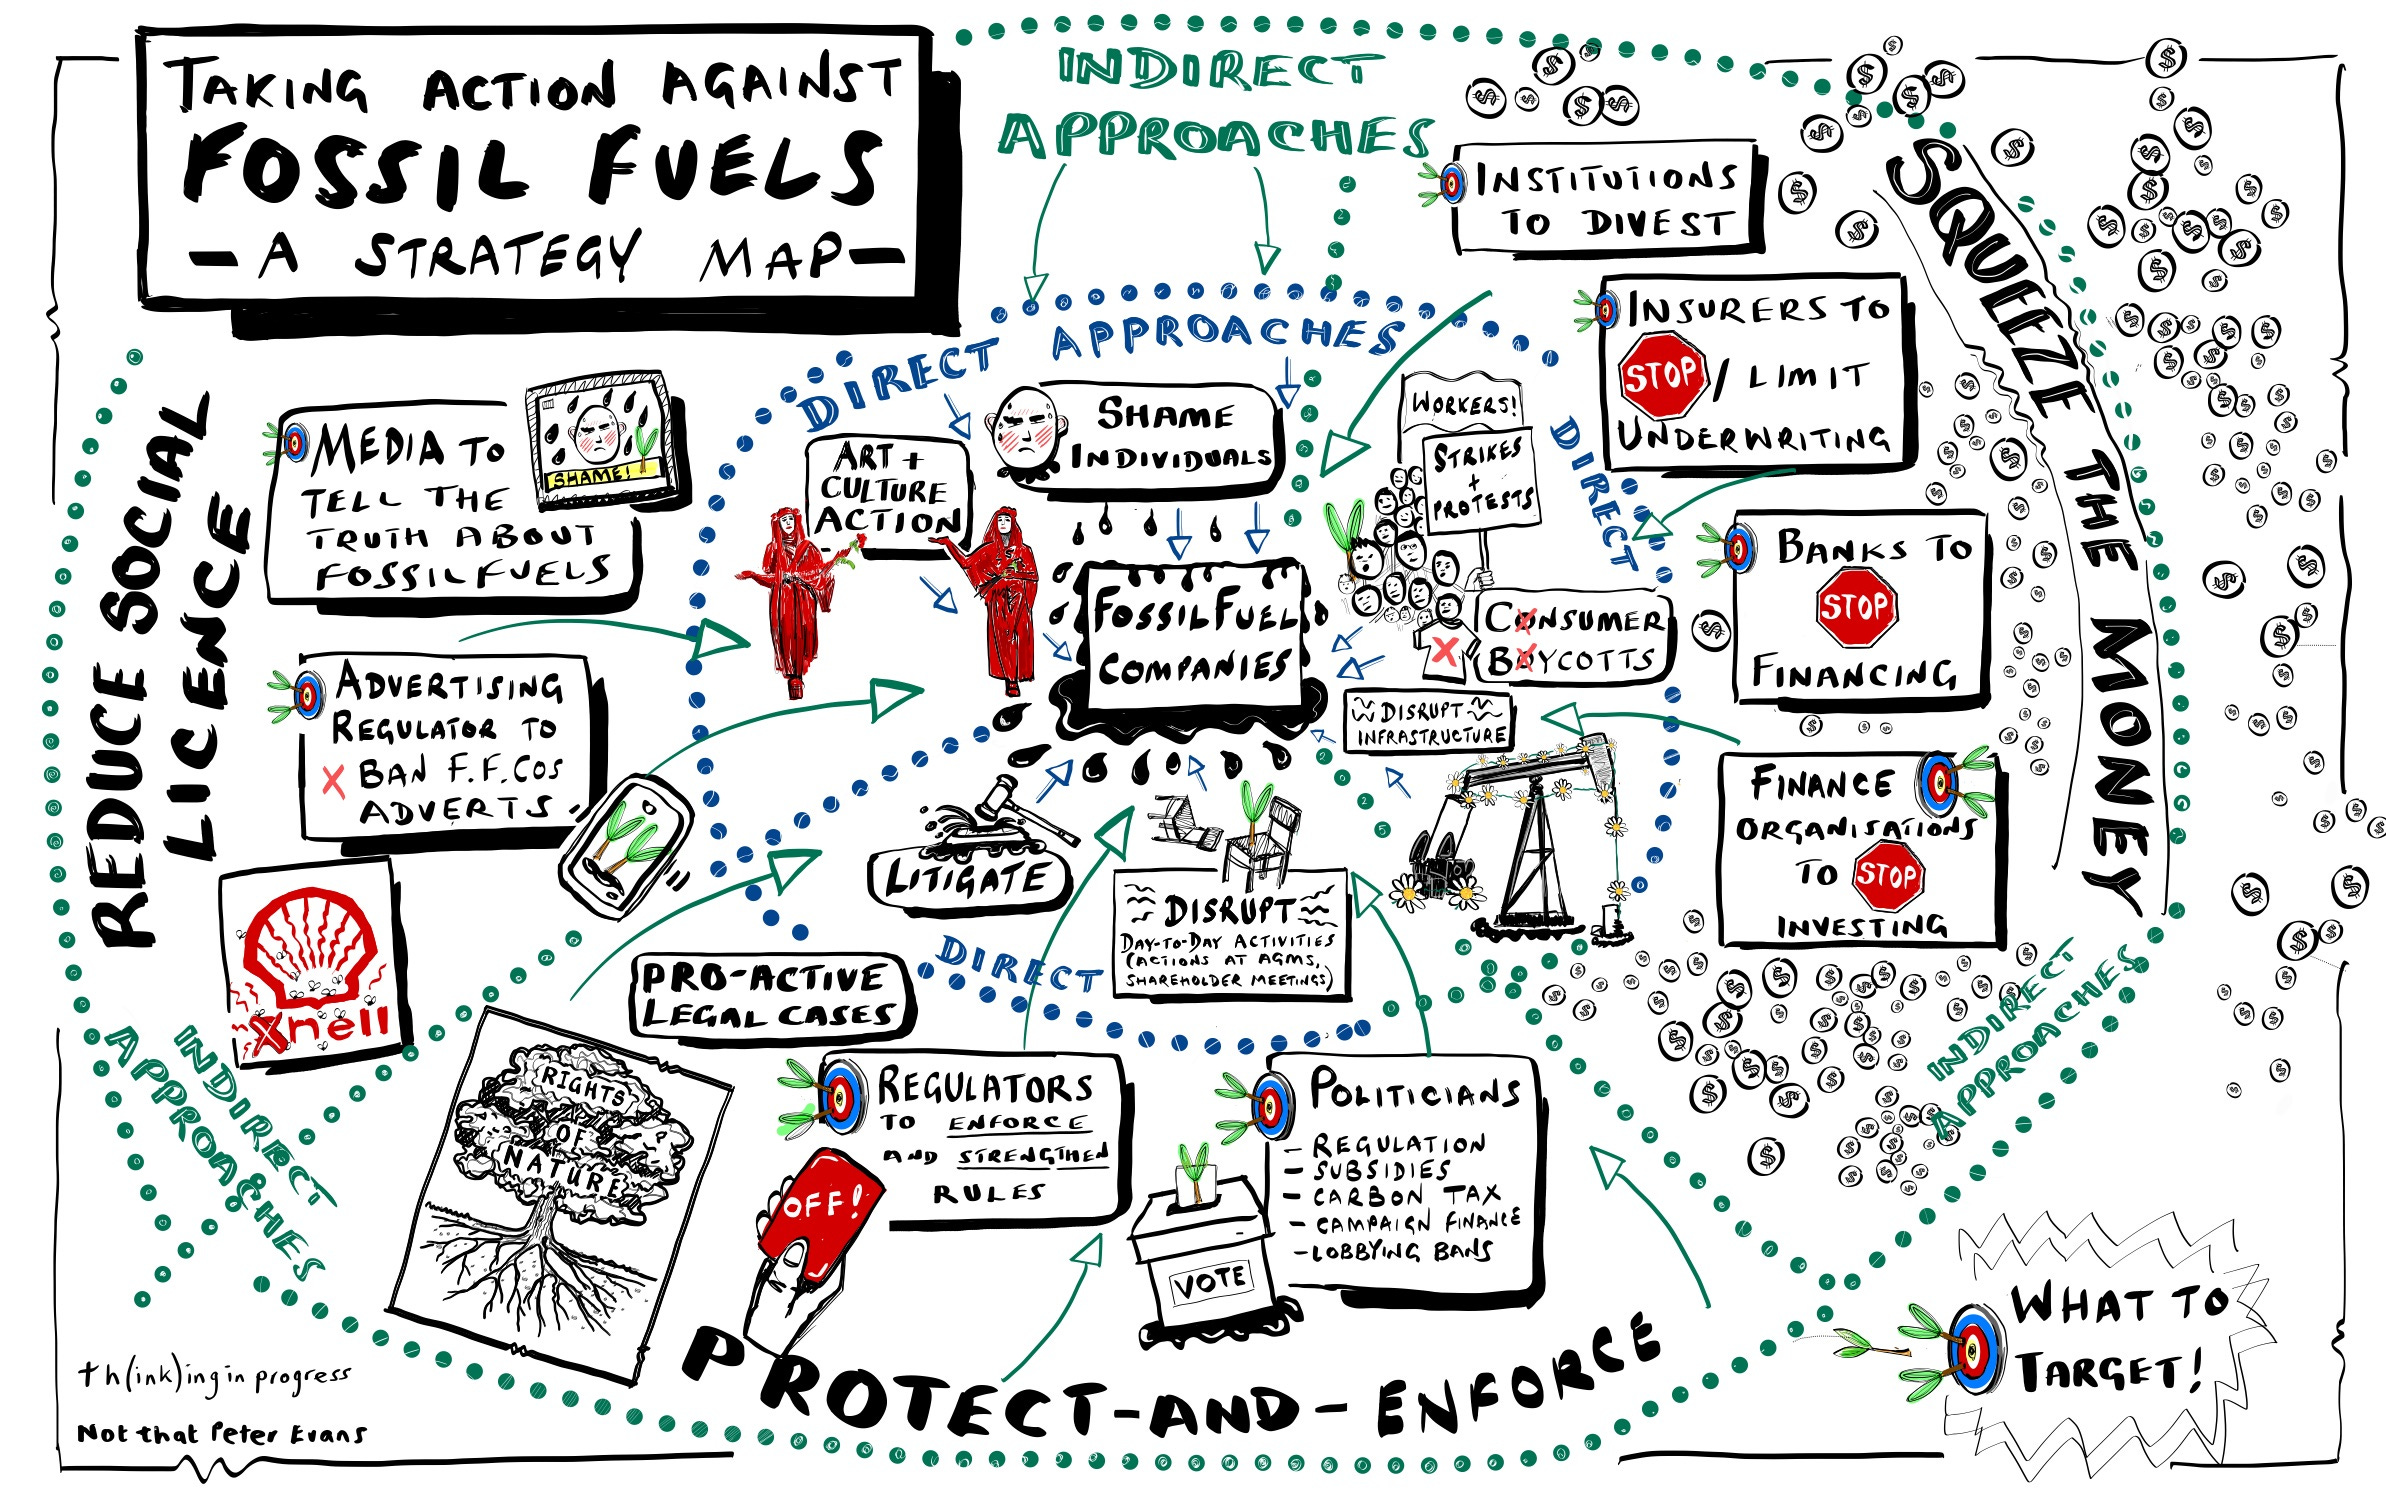 TAKING ACTION AGAINST
FOSSIL FUELS
- A STRATEGY MAP -
INDIRECT
APPROACHES
INSTITUTIONS
TO DIVEST
SQUEEZE THE MONEY
INSURERS TO
STOP / LIMIT
UNDERWRITING
BANKS TO
STOP
FINANCING
FINANCE
ORGANISATIONS
TO STOP
INVESTING
INDIRECT
APPROACHES
DIRECT APPROACHES
DIRECT
SHAME
INDIVIDUALS
ART +
CULTURE
ACTION
WORKERS!
STRIKES
+
PROTESTS
FOSSIL FUEL
COMPANIES
CONSUMER
BOYCOTTS
DISRUPT
INFRASTRUCTURE
LITIGATE
DISRUPT
DAY-TO-DAY ACTIVITIES
(ACTIONS AT AGMS,
SHAREHOLDER MEETINGS)
DIRECT
REDUCE SOCIAL
LICENCE
MEDIA TO
TELL THE
TRUTH ABOUT
FOSSIL FUELS
SHAME!
ADVERTISING
REGULATOR TO
X BAN F.F.COS
ADVERTS
Xnell
INDIRECT
APPROACHES
PRO-ACTIVE
LEGAL CASES
RIGHTS
OF
NATURE
REGULATORS
TO ENFORCE
AND STRENGTHEN
RULES
OFF!
POLITICIANS
- REGULATION
- SUBSIDIES
- CARBON TAX
- CAMPAIGN FINANCE
- LOBBYING BANS
VOTE
PROTECT-AND-ENFORCE
WHAT TO
TARGET!
th(ink)ing in progress
Not that Peter Evans